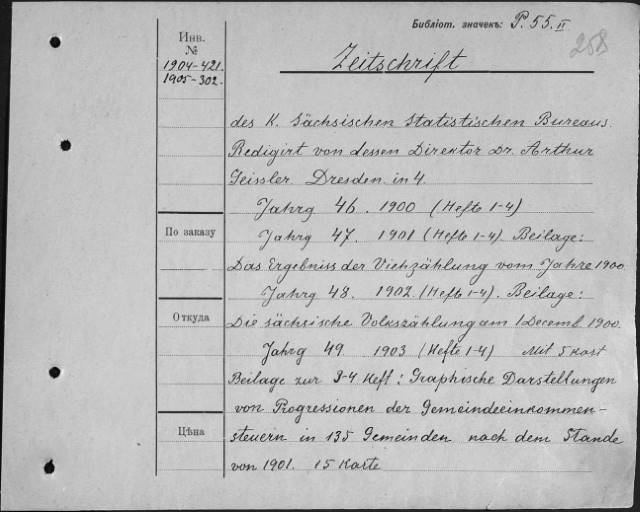 Библіот. значекъ: P. 55. II
258
Инв.
№
1904-421.
1905-302.
Zeitschrift
des K. Sächsischen Statistischen Bureaus.
Redigirt von dessen Direktor Dr. Arthur
Geissler. Dresden. in 4.
Jahrg 46. 1900 (Hefte 1-4)
По заказу
Jahrg 47. 1901 (Hefte 1-4). Beilage:
Das Ergebniss der Viehzählung vom Jahre 1900.
Jahrg 48. 1902. (Hefte 1-4). Beilage:
Откуда
Die sächsische Volkszählung am 1 Decemb. 1900.
Jahrg 49. 1903 (Hefte 1-4) Mit 5 Kart
Beilage zur 3-4 Heft: Graphische Darstellungen
von Progressionen der Gemeindeeinkommen-
Цѣна
steuern in 135 Gemeinden nach dem Stande
von 1901. 15 Karte